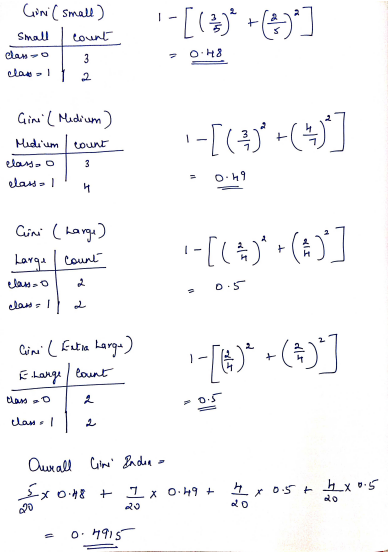 Gini (Small)
Small | count
class=0 | 3
class=1 | 2
1 - [(3/5)² + (2/5)²]
= 0.48
Gini (Medium)
Medium | count
class=0 | 3
class=1 | 4
1 - [(3/7)² + (4/7)²]
= 0.49
Gini (Large)
Large | Count
class=0 | 2
class=1 | 2
1 - [(2/4)² + (2/4)²]
= 0.5
Gini (Extra Large)
E.Large | Count
class=0 | 2
class=1 | 2
1 - [(2/4)² + (2/4)²]
= 0.5
Overall Gini Index =
5/20 x 0.48 + 7/20 x 0.49 + 4/20 x 0.5 + 4/20 x 0.5
= 0.4915